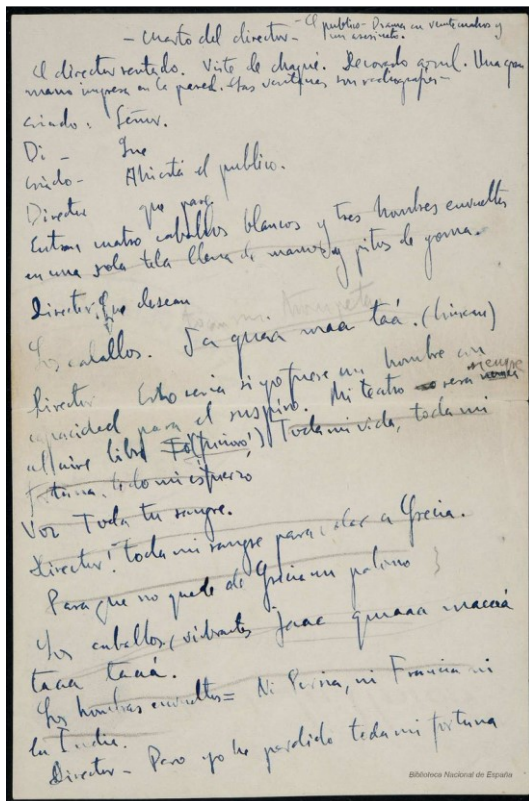 - Cuarto del director - El publico - Drama en veinte cuadros y
un asesinato.
El director sentado. Viste de chaqué. Decorado azul. Una gran
mano impresa en la pared. Las ventanas son radiografias -
Criado: Señor.
Di - Que
Criado - Ahi está el publico.
Director que pase
Entran cuatro caballos blancos y tres hombres envueltos
en una sola tela llena de manos y pitos de goma.
Director: Que desean
trompetas
Los caballos. (
Director Esto seria si yo fuese un hombre con
capacidad para el suspiro. Mi teatro sera siempre
al aire libre Toda mi vida, toda mi
fortuna. todo mi esfuerzo
Voz Toda tu sangre.
Director! toda mi sangre para a Grecia.
Para que no quede de Grecia un palmo
Los caballos, vibrantes
taaa taaá.
Los hombres envueltos = Ni Persia, ni Francia ni
la India.
Director - Pero yo he perdido toda mi fortuna
Biblioteca Nacional de España